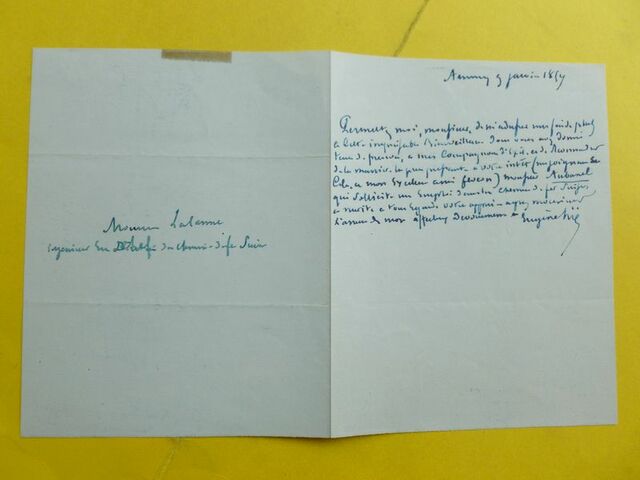 Monsieur Lalanne
ingénieur en chef du chemin de fer Suisse
Annecy 9 janvier 1854
Permettez moi, monsieur, de m'adresser une fois de plus
à cette inépuisable Bienveillance dont vous avez donné
tant de preuves, à mes Compagnons d'Exil, et de recommander
de la manière la plus pressante à votre intérêt
à mon Excellent ami monsieur Aubanel
qui sollicite un Emploi dans les chemins de fer Suisses
et mérite à tous égards votre appui
l'assurance de mon affectueux dévouement Eugène Sue